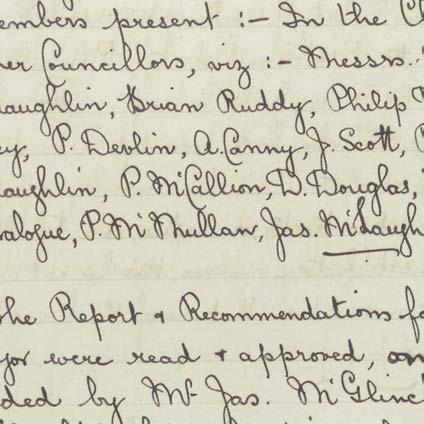 embers present :- In the C
er Councillors, viz :- Messrs.
aughlin, Brian Ruddy, Philip
ey, P. Devlin, A. Canny, J. Scott,
aughlin, P. McCallion, D. Douglas,
alogue, P. McMullan, Jas. McLaugh
the Report & Recommendations fo
yor were read & approved, on
ded by Mr Jas. McGlinc